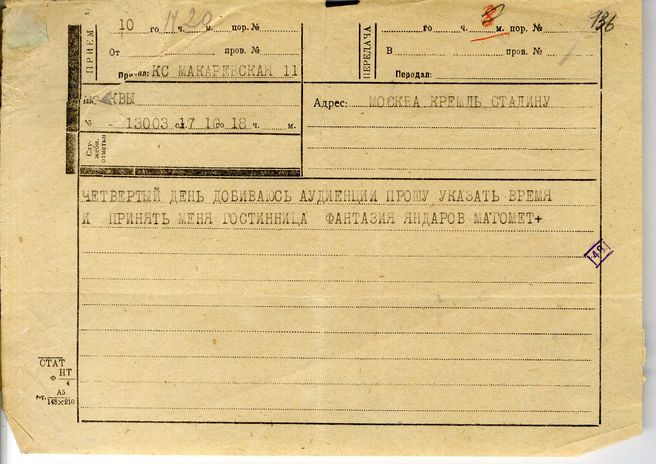 ПРИЕМ
10 го ч. м. пор. №
1120
От пров. №
Принял: КС МАКАРЕВСКАЯ 11
КВЫ
№ - 13003 сл. 17 10 го 18 ч. м.
Служебн. отметки
ПЕРЕДАЧА
го ч. 8 м. пор. №
136
В пров. №
Передал:
Адрес: МОСКВА КРЕМЛЬ СТАЛИНУ
ЧЕТВЕРТЫЙ ДЕНЬ ДОБИВАЮСЬ АУДИЕНЦИИ ПРОШУ УКАЗАТЬ ВРЕМЯ
И ПРИНЯТЬ МЕНЯ ГОСТИННИЦА ФАНТАЗИЯ ЯНДАРОВ МАГОМЕТ+
48
СТАТ
НТ
Ф 4
А5
148×210